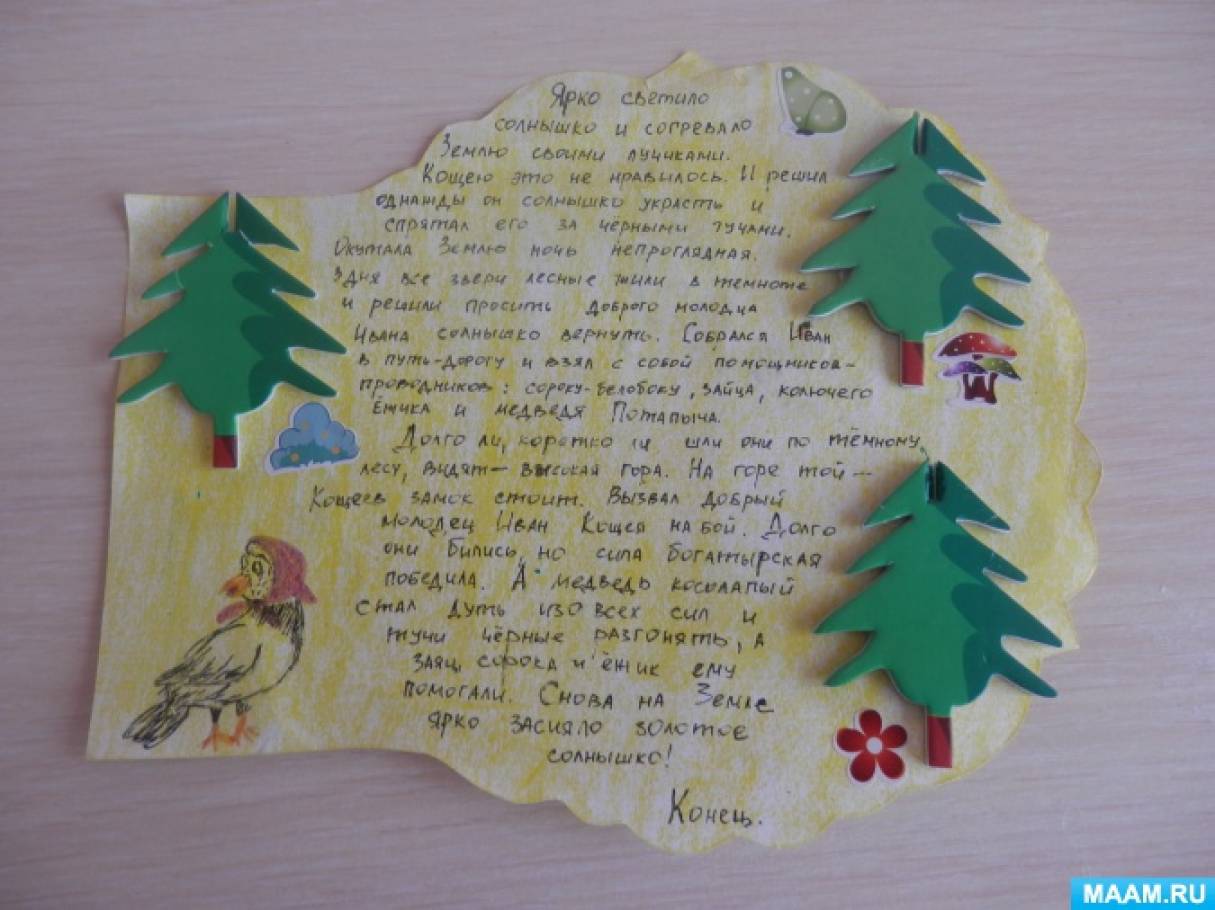 Ярко светило
солнышко и согревало
Землю своими лучиками.
Кощею это не нравилось. И решил
однажды он солнышко украсть и
спрятал его за чёрными тучами.
Окутала Землю ночь непроглядная.
3 дня все звери лесные жили в темноте
и решили просить доброго молодца
Ивана солнышко вернуть. Собрался Иван
в путь-дорогу и взял с собой помощников-
проводников: сороку-белобоку, зайца, колючего
Ёжика и медведя Потапыча.
Долго ли, коротко ли шли они по тёмному
лесу, видят - высокая гора. На горе той -
Кощеев замок стоит. Вызвал добрый
молодец Иван Кощея на бой. Долго
они бились, но сила богатырская
победила. А медведь косолапый
стал дуть изо всех сил и
тучи чёрные разгонять, а
заяц, сорока и ёжик ему
помогали. Снова на Земле
ярко засияло золотое
солнышко!
Конец.
MAAM.RU